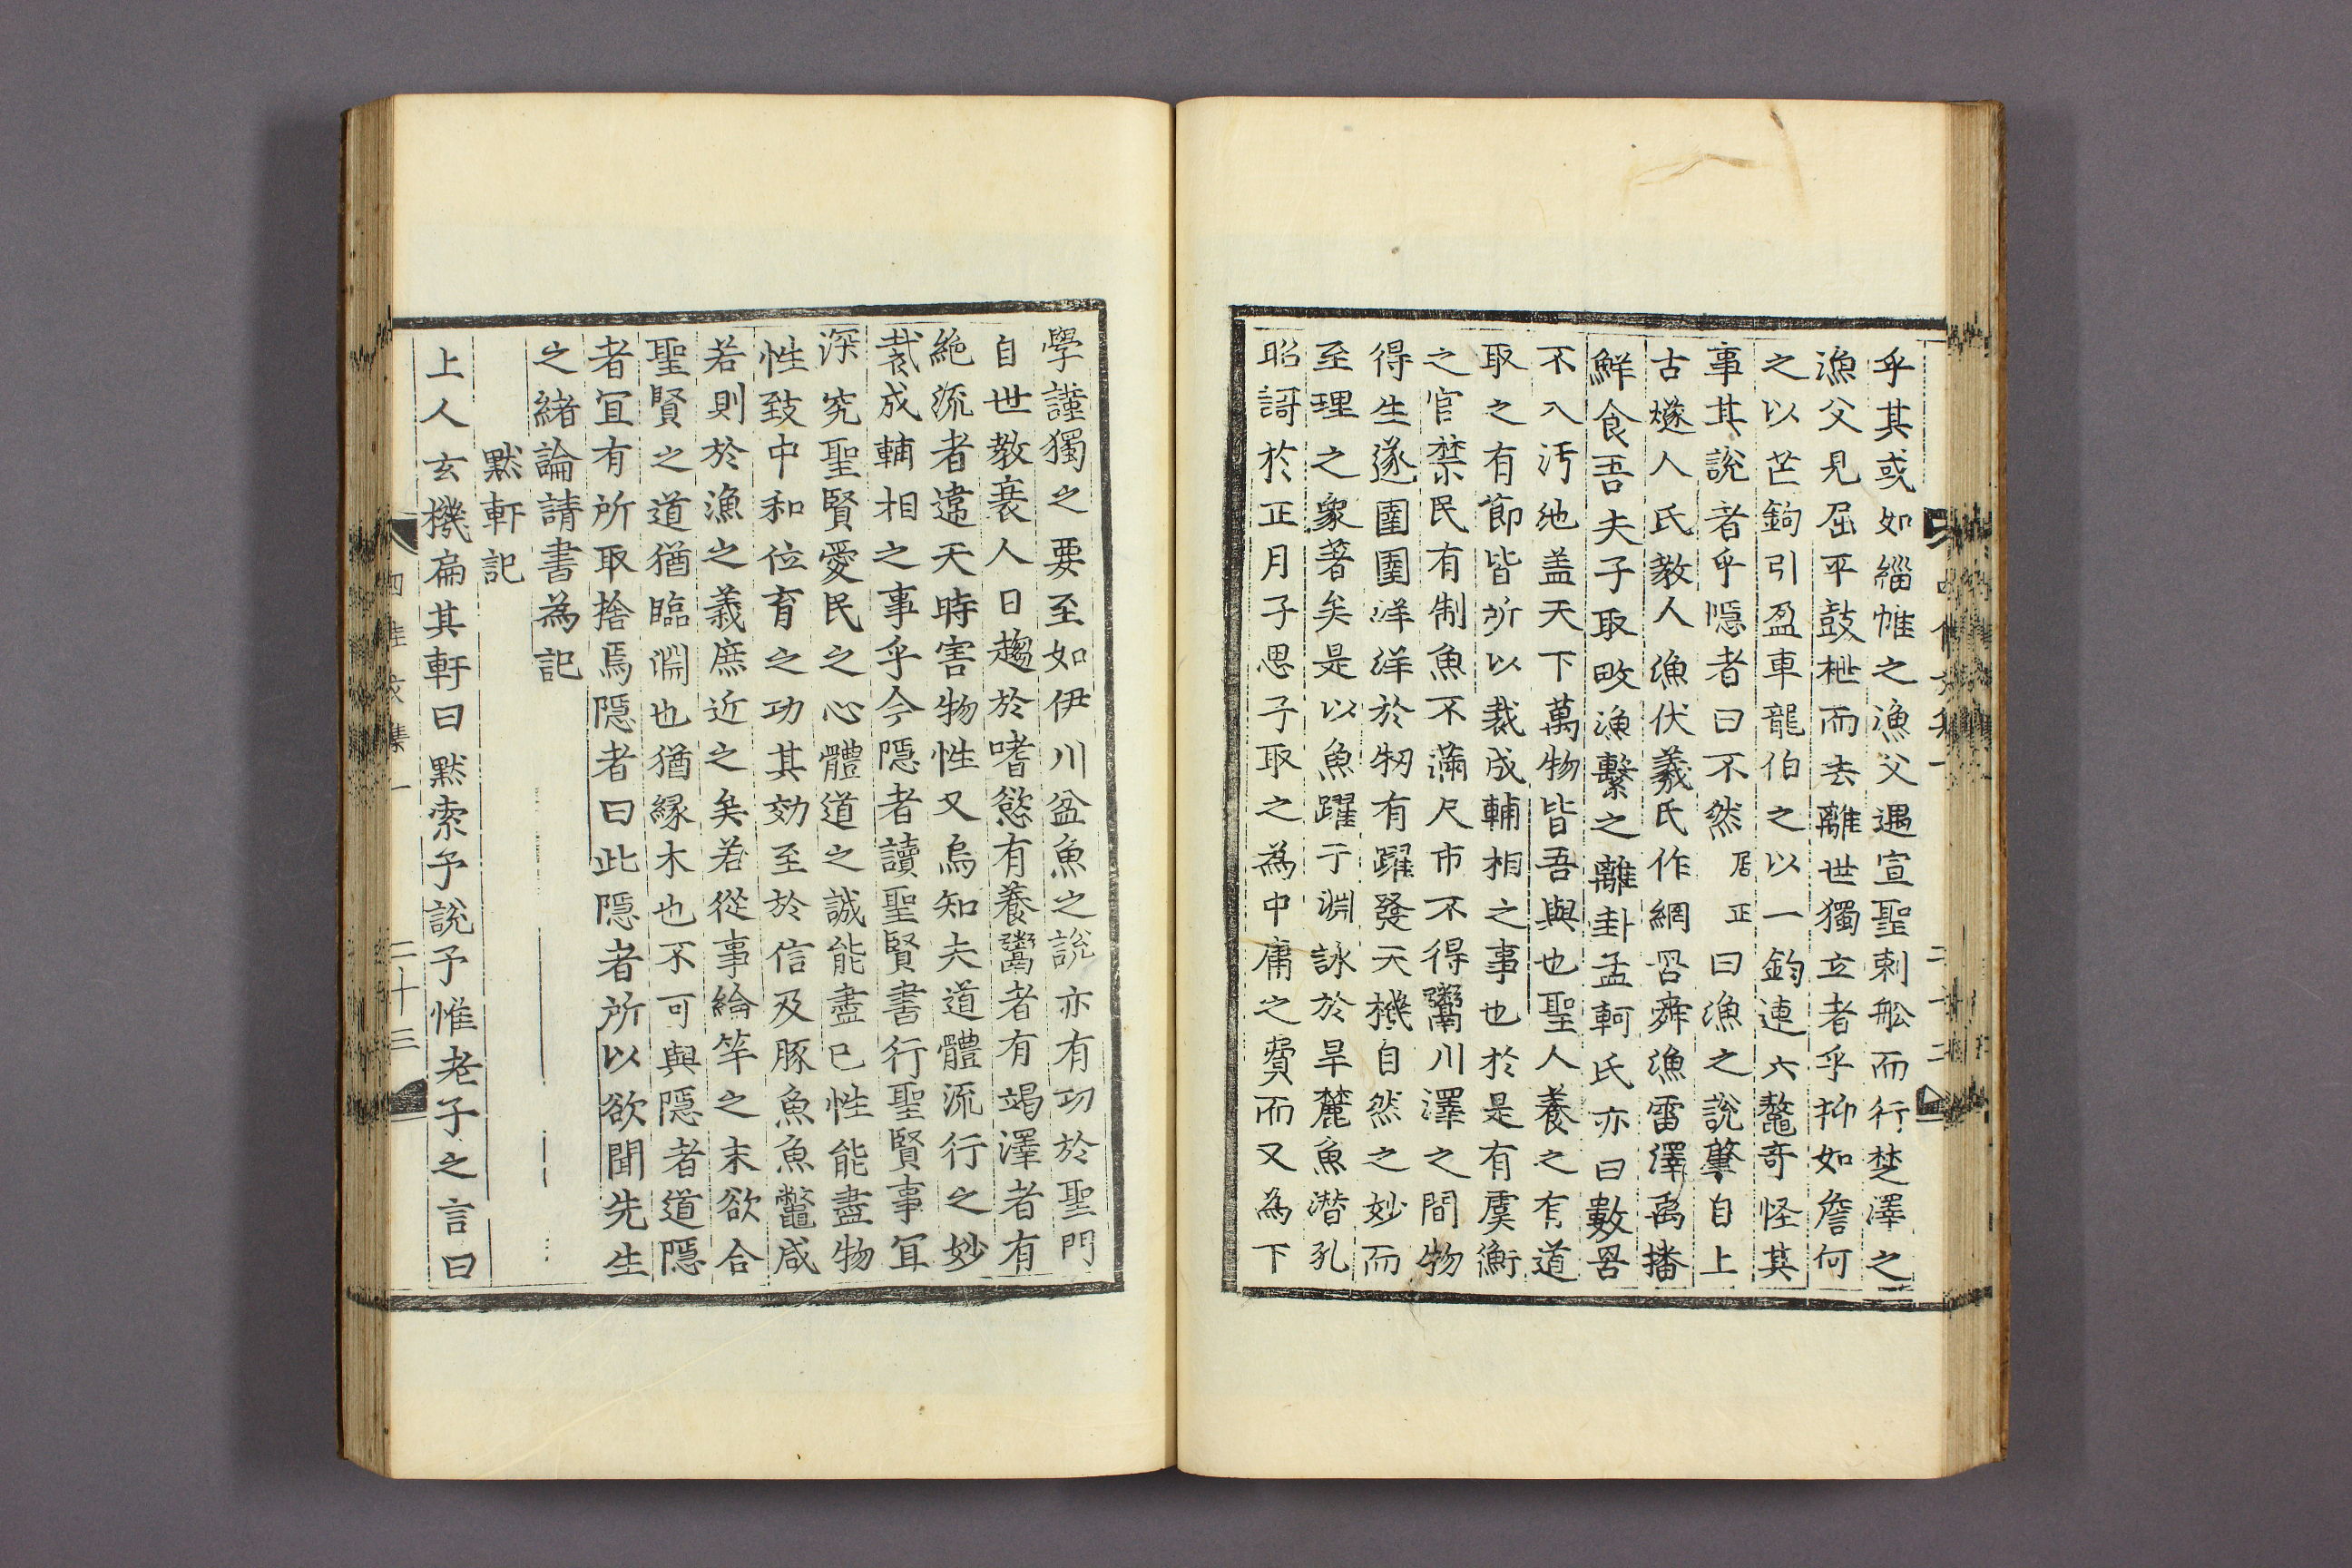 乎其或如緇帷之漁父遇宣聖刺舩而行楚澤之
漁父見屈平鼓枻而去離世獨立者乎抑如詹何
之以芒鉤引盈車龍伯之以一鈞連六鼇奇怪其
事其說者乎隱者曰不然居正曰漁之說肇自上
古燧人氏教人漁伏羲氏作網罟舜漁雷澤禹播
鮮食吾夫子取畋漁繫之離卦孟軻氏亦曰數罟
不入汚池盖天下萬物皆吾與也聖人養之有道
取之有節皆所以裁成輔相之事也於是有虞衡
之官禁民有制魚不滿尺市不得鬻川澤之間物
得生遂圉圉洋洋於牣有躍發天機自然之妙而
至理之象著矣是以魚躍于淵詠於旱麓魚潛孔
昭謌於正月子思子取之為中庸之費而又為下
學謹獨之要至如伊川盆魚之說亦有功於聖門
自世教衰人日趨於嗜慾有養鬻者有竭澤者有
絶流者違天時害物性又烏知夫道體流行之妙
裁成輔相之事乎今隱者讀聖賢書行聖賢事宜
深究聖賢愛民之心體道之誠能盡已性能盡物
性致中和位育之功其効至於信及豚魚魚鼈咸
若則於漁之義庶近之矣若從事綸竿之末欲合
聖賢之道猶臨淵也猶縁木也不可與隱者道隱
者宜有所取捨焉隱者曰此隱者所以欲聞先生
之緖論請書為記
默軒記
上人玄機扁其軒曰默索予說予惟老子之言曰
四佳文集一
二十三